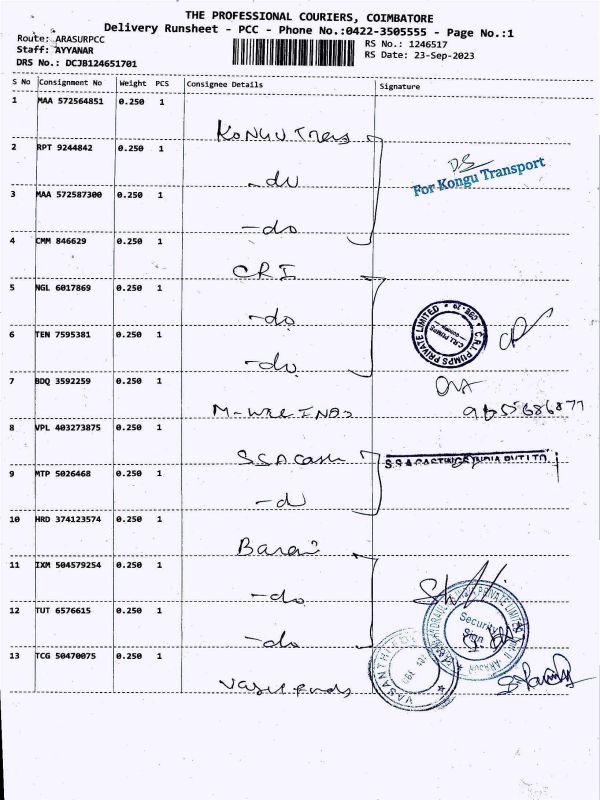 THE PROFESSIONAL COURIERS, COIMBATORE
Delivery Runsheet - PCC - Phone No.:0422-3505555 - Page No.:1
Route: ARASURPCC
Staff: AYYANAR
DRS No.: DCJB124651701
RS No.: 1246517
RS Date: 23-Sep-2023
S No Consignment No Weight PCS Consignee Details Signature
1 MAA 572564851 0.250 1
Kongu Trans
2 RPT 9244842 0.250 1
-du
For Kongu Transport
3 MAA 572587300 0.250 1
-do
4 CMM 846629 0.250 1
CRI
5 NGL 6017869 0.250 1
-do
C.R.I. PUMPS PRIVATE LIMITED
6 TEN 7595381 0.250 1
-do
7 BDQ 3592259 0.250 1
9655686877
8 VPL 403273875 0.250 1
SSA Cash
S.S.A CASTINGS INDIA PVT LTD.
9 MTP 5026468 0.250 1
-d
10 HRD 374123574 0.250 1
11 IXM 504579254 0.250 1
-do
PRIVATE LIMITED
Security
Sign
12 TUT 6576615 0.250 1
-do
13 TCG 50470075 0.250 1